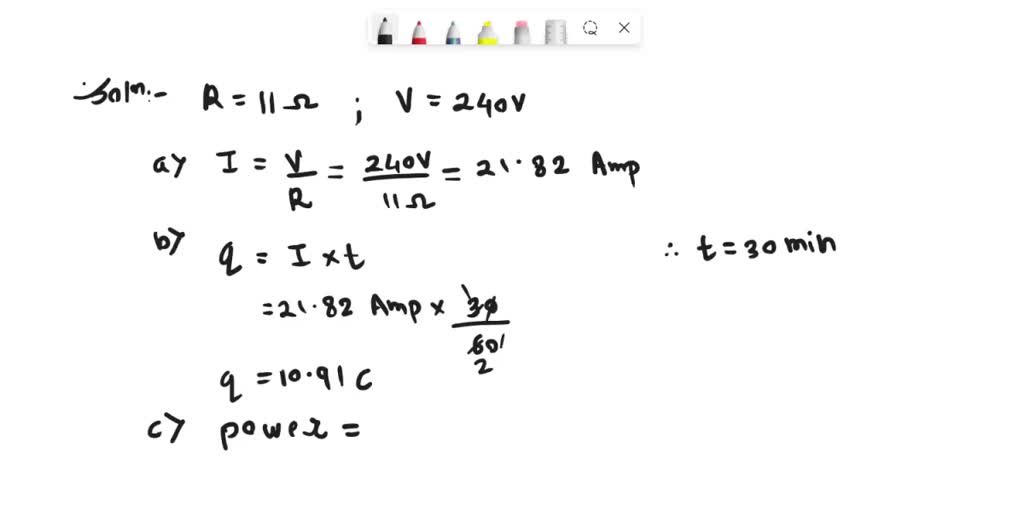 Soln:- R = 11Ω ; V = 240V
a) I = V/R = 240V/11Ω = 21.82 Amp
b) q = I × t ∴ t = 30 min
= 21.82 Amp × 30/60 1 2
q = 10.91 C
c) power =